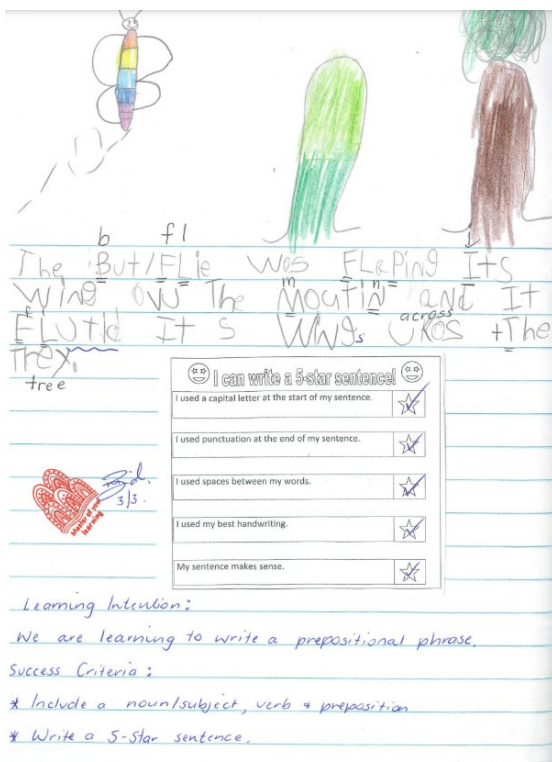 b fl i
The But/FLie wos FLaPing Its
m n
Wing ovu The Moutin and It
f across
FLUtid It s Wings UKos +The
Trex.
tree
I can write a 5-star sentence!
I used a capital letter at the start of my sentence.
I used punctuation at the end of my sentence.
I used spaces between my words.
I used my best handwriting.
My sentence makes sense.
Master of your learning
3/3.
Learning Intention:
We are learning to write a prepositional phrase.
Success Criteria:
* Include a noun/subject, verb & preposition
* Write a 5-star sentence.